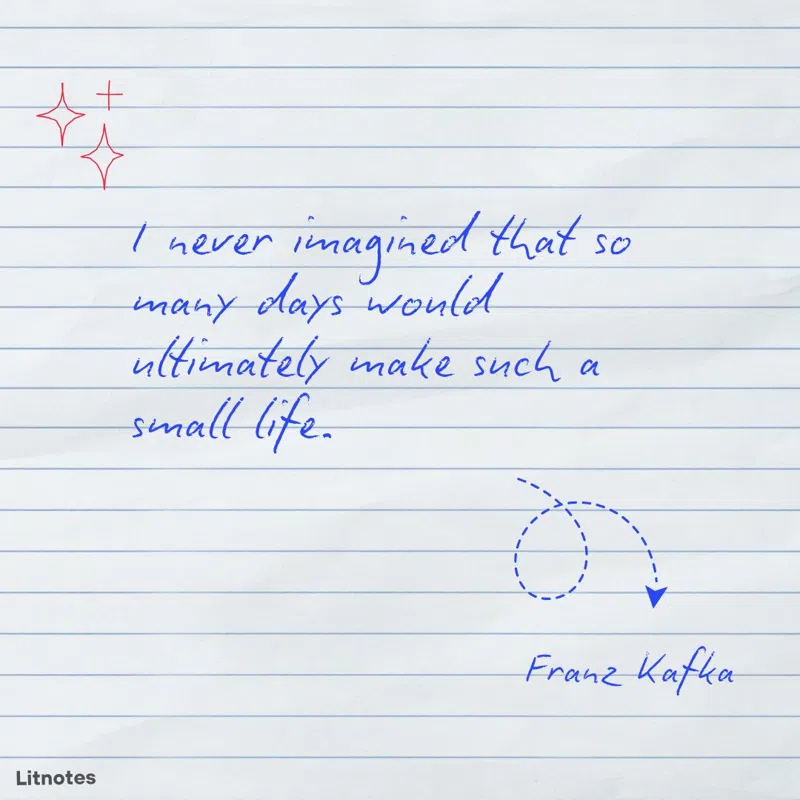 I never imagined that so
many days would
ultimately make such a
small life.
Franz Kafka
Litnotes